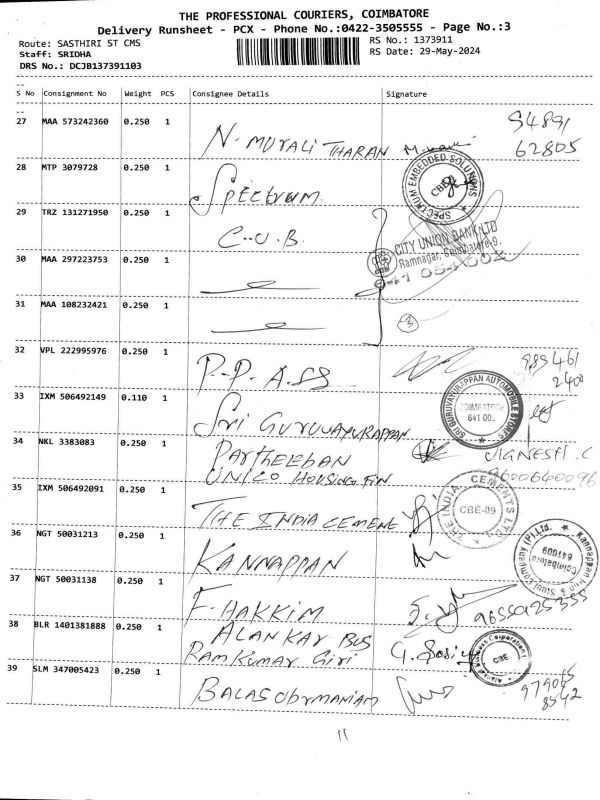 THE PROFESSIONAL COURIERS, COIMBATORE
Delivery Runsheet - PCX - Phone No.:0422-3505555 - Page No.:3
Route: SASTHIRI ST CMS
RS No.: 1373911
Staff: SRIDHA
RS Date: 29-May-2024
DRS No.: DCJB137391103
S No Consignment No Weight PCS Consignee Details Signature
27 MAA 573242360 0.250 1 N. MURALI THARAN 94891 62805
28 MTP 3079728 0.250 1 Spectrum
SPECTRUM EMBEDDED SOLUTIONS CBE
29 TRZ 131271950 0.250 1 C.U.B.
CITY UNION BANK LTD
Ramnagar, Coimbatore-9.
30 MAA 297223753 0.250 1
641 054 002
31 MAA 108232421 0.250 1
3
32 VPL 222995976 0.250 1 P.P.A.SS
989461
2400
33 IXM 506492149 0.110 1 SRI GURUVAYURAPPAN
SRI GURUVAYURAPPAN AUTOMOBILE STORES COIMBATORE 641 009
34 NKL 3383083 0.250 1 PARTHEEBAN VIGNESH.C
UNICO HOUSING FIN 9600640096
35 IXM 506492091 0.250 1 THE INDIA CEMENT
THE INDIA CEMENTS LTD. CBE-09
36 NGT 50031213 0.250 1 KANNAPPAN
Kannappan Iron & Steel Company (P) Ltd. Coimbatore 641009
37 NGT 50031138 0.250 1 F. HAKKIM 9655925355
38 BLR 1401381888 0.250 1 ALANKAR BUS
RAMKUMAR GIRI
Business Corporation CBE
39 SLM 347005423 0.250 1 BALASUBRMANIAM
8542
11